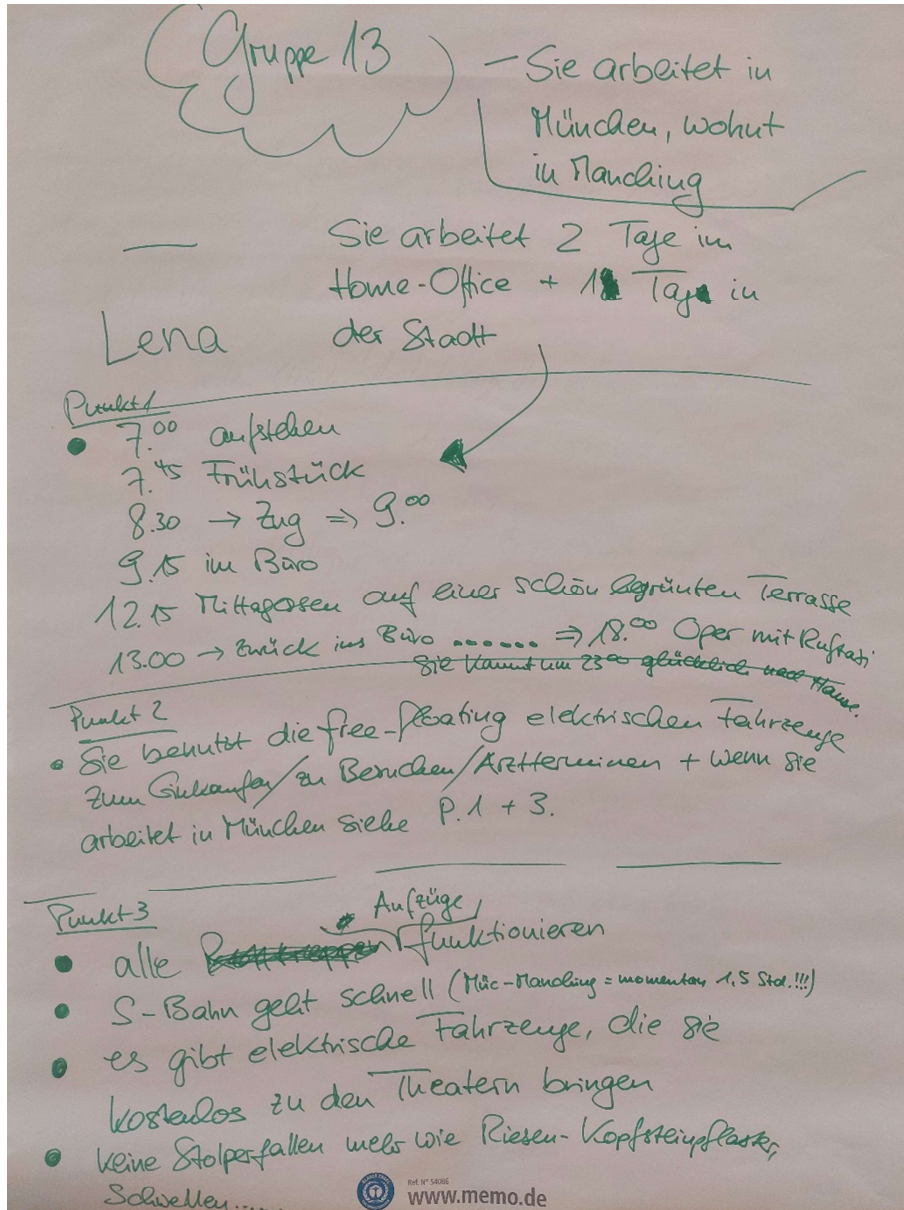 Gruppe 13
– Sie arbeitet in
München, wohnt
in Manching
Sie arbeitet 2 Tage im
Home-Office + 1 Tag in
der Stadt
Lena
Punkt 1
• 7.00 aufstehen
7.45 Frühstück
8.30 → Zug ⇒ 9.00
9.15 im Büro
12.15 Mittagessen auf einer schön begrünten Terrasse
13.00 → Zurück ins Büro ...... ⇒ 18.00 Oper mit Ruftaxi
Sie kommt um 23.00 glücklich nach Hause.
Punkt 2
• Sie benutzt die free-floating elektrischen Fahrzeuge
zum Einkaufen/zu Besuchen/Arztterminen + wenn sie
arbeitet in München siehe P. 1 + 3.
Punkt 3
Aufzüge
• alle funktionieren
• S-Bahn geht schnell (Müc-Manching = momentan 1,5 Std.!!!)
• es gibt elektrische Fahrzeuge, die sie
kostenlos zu den Theatern bringen
• keine Stolperfallen mehr wie Riesen-Kopfsteinpflaster,
Schwellen.....
Ref. N° 54086
www.memo.de